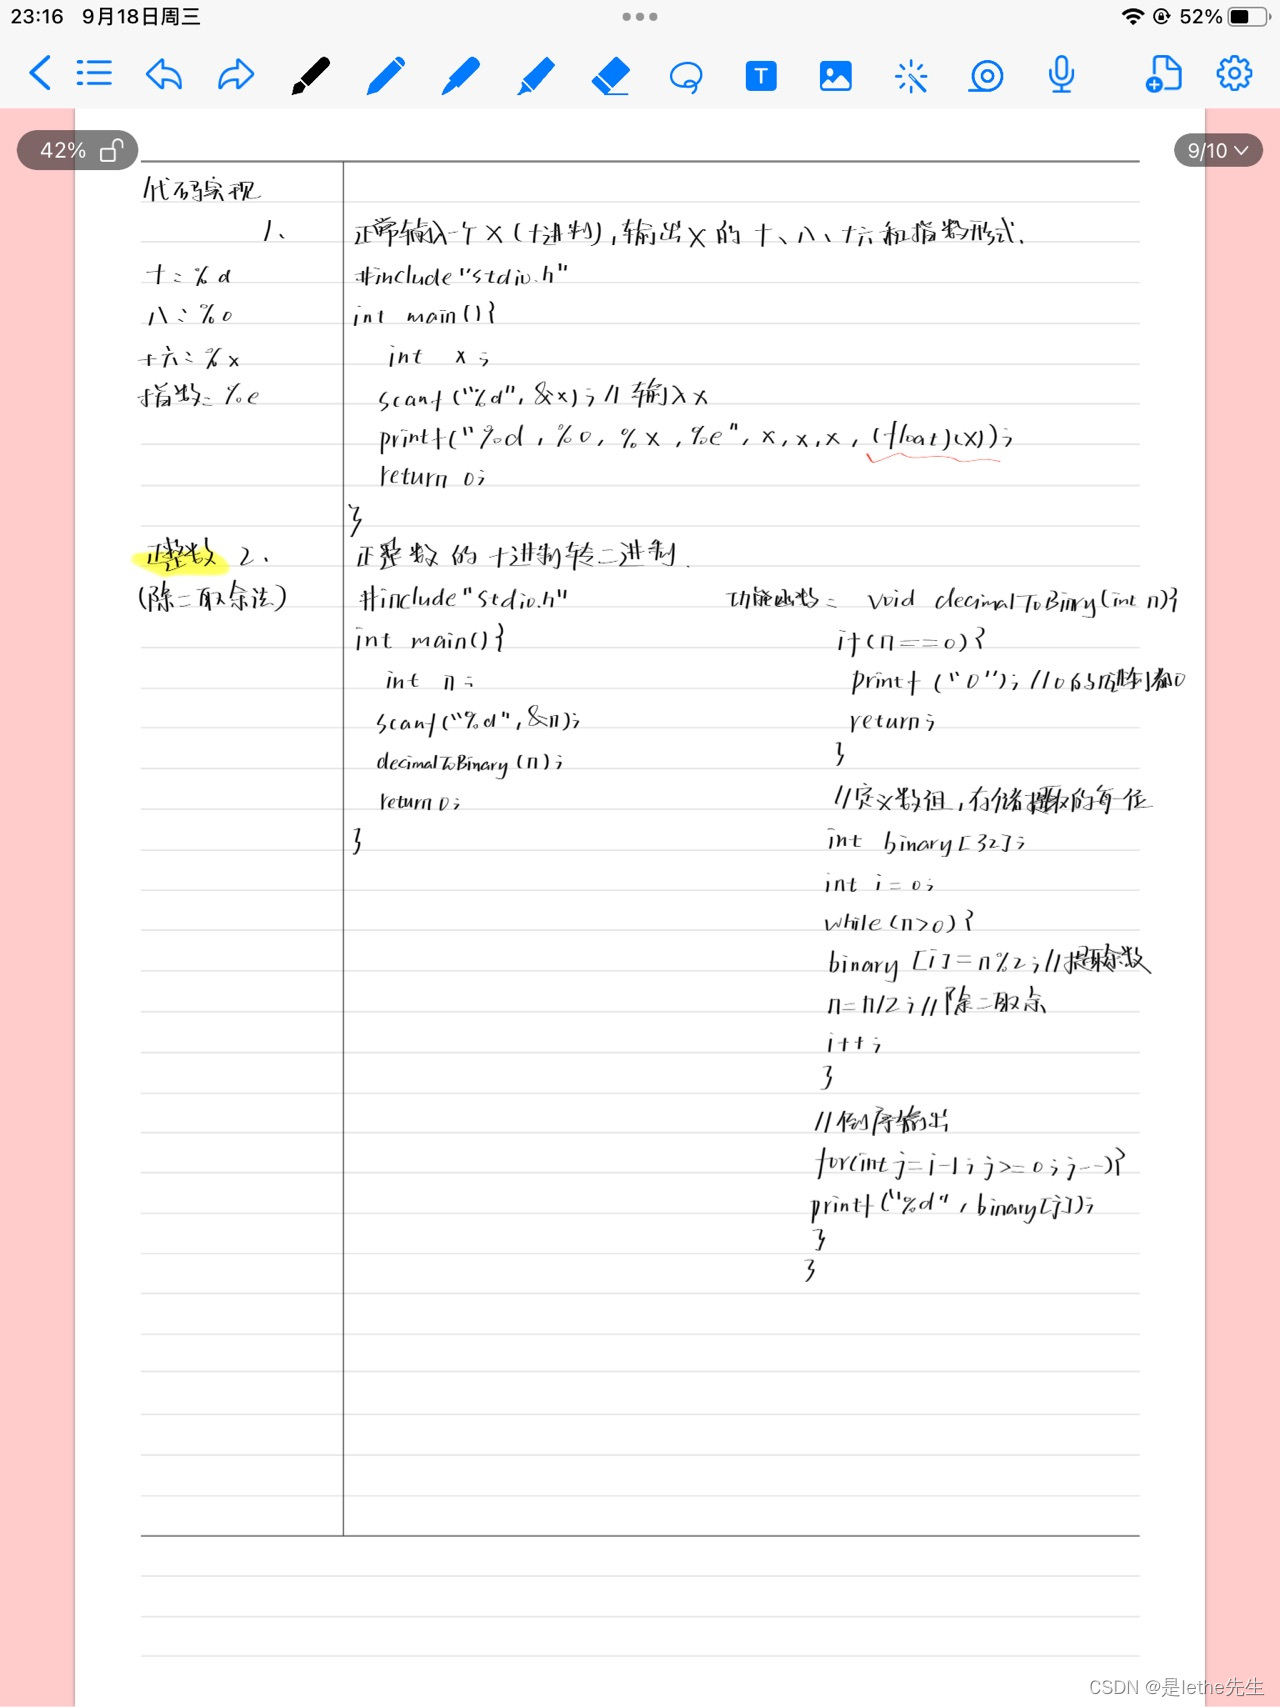 23:16 9月18日周三
52%
42%
9/10
代码实现
1、 正常输入一个X(十进制),输出X的十、八、十六和指数形式.
十:%d #include"stdio.h"
八:%o int main(){
十六:%x int x;
指数:%e scanf("%d",&x);//输入x
printf("%d,%o,%x,%e",x,x,x,(float)(x));
return 0;
}
正整数 2、 正整数的十进制转二进制.
(除二取余法) #include"stdio.h"
int main(){
int n;
scanf("%d",&n);
decimalToBinary(n);
return 0;
}
功能函数: void decimalToBinry(int n){
if(n==0){
printf("0");//0的二进制都0
return;
}
//定义数组,存储提取的每一位
int binary[32];
int i=0;
while(n>0){
binary[i]=n%2;//提取余数
n=n/2;//除二取余
i++;
}
//倒序输出
for(int j=i-1;j>=0;j--){
printf("%d",binary[j]);
}
}
CSDN @是lethe先生